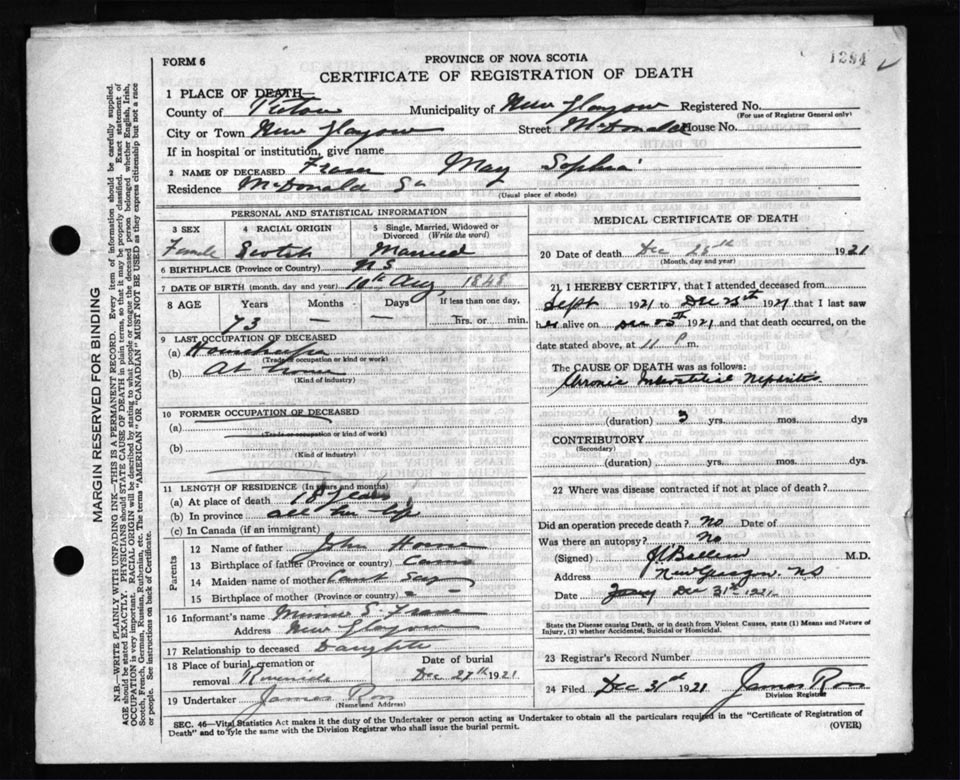 1294
FORM 6
PROVINCE OF NOVA SCOTIA
CERTIFICATE OF REGISTRATION OF DEATH
1 PLACE OF DEATH—
County of Pictou Municipality of New Glasgow Registered No.
(For use of Registrar General only)
City or Town New Glasgow Street McDonald House No.
If in hospital or institution, give name
2 NAME OF DECEASED Fraser May Sophia
Residence McDonald St
(Usual place of abode)
PERSONAL AND STATISTICAL INFORMATION
3 SEX 4 RACIAL ORIGIN 5 Single, Married, Widowed or Divorced (Write the word)
Female Scotch Married
6 BIRTHPLACE (Province or Country) N S
7 DATE OF BIRTH (month, day and year) 10th Aug 1848
8 AGE Years Months Days If less than one day,
73 — — hrs. or min.
9 LAST OCCUPATION OF DECEASED
(a) Housekeeper
(Trade occupation or kind or work)
(b) At home
(Kind of industry)
10 FORMER OCCUPATION OF DECEASED
(a)
(Trade occupation or kind of work)
(b)
(Kind of industry)
11 LENGTH OF RESIDENCE (In years and months)
(a) At place of death 18 years
(b) In province all her life
(c) In Canada (if an immigrant)
Parents
12 Name of father John Horne
13 Birthplace of father (Province or Country)
14 Maiden name of mother Cant Say
15 Birthplace of mother (Province or country)
16 Informant's name Minnie S. Fraser
Address New Glasgow
17 Relationship to deceased Daughter
18 Place of burial, cremation or removal Riverside Date of burial Dec 27th 1921
19 Undertaker James Ross
(Name and Address)
MEDICAL CERTIFICATE OF DEATH
20 Date of death Dec 25th 1921
(Month, day and year)
21. I HEREBY CERTIFY, that I attended deceased from
Sept 1921 to Dec 25th 1921 that I last saw
her alive on Dec 1921 and that death occurred, on the
date stated above, at 11 P m.
The CAUSE OF DEATH was as follows:
Chronic Interstitial Nephritis
(duration) 2 yrs. mos. dys
CONTRIBUTORY
(Secondary)
(duration) yrs. mos. dys.
22 Where was disease contracted if not at place of death?
Did an operation precede death? No Date of
Was there an autopsy? No
(Signed) M.D.
Address New Glasgow NS
Date Dec 31st 1921
State the Disease causing Death, or in death from Violent Causes, state (1) Means and Nature of
Injury, (2) whether Accidental, Suicidal or Homicidal.
23 Registrar's Record Number
24 Filed Dec 31st 1921 James Ross
Division Registrar
SEC. 46—Vital Statistics Act makes it the duty of the Undertaker or person acting as Undertaker to obtain all the particulars required in the "Certificate of Registration of
Death" and to fyle the same with the Division Registrar who shall issue the burial permit. (OVER)
MARGIN RESERVED FOR BINDING
N.B.—WRITE PLAINLY WITH UNFADING INK—THIS IS A PERMANENT RECORD. Every item of information should be carefully supplied.
AGE should be stated EXACTLY. PHYSICIANS should STATE CAUSE OF DEATH in plain terms, so that it may be properly classified. Exact statement of
OCCUPATION is very important. RACIAL ORIGIN will be described by stating to what people or tongue the deceased person belonged whether English, Irish,
Scotch, French, German, Russian, Ruthenian, etc. The terms "AMERICAN" OR "CANADIAN" MUST NOT BE USED as they express citizenship but not a race
or people. See instructions on back of Certificate.